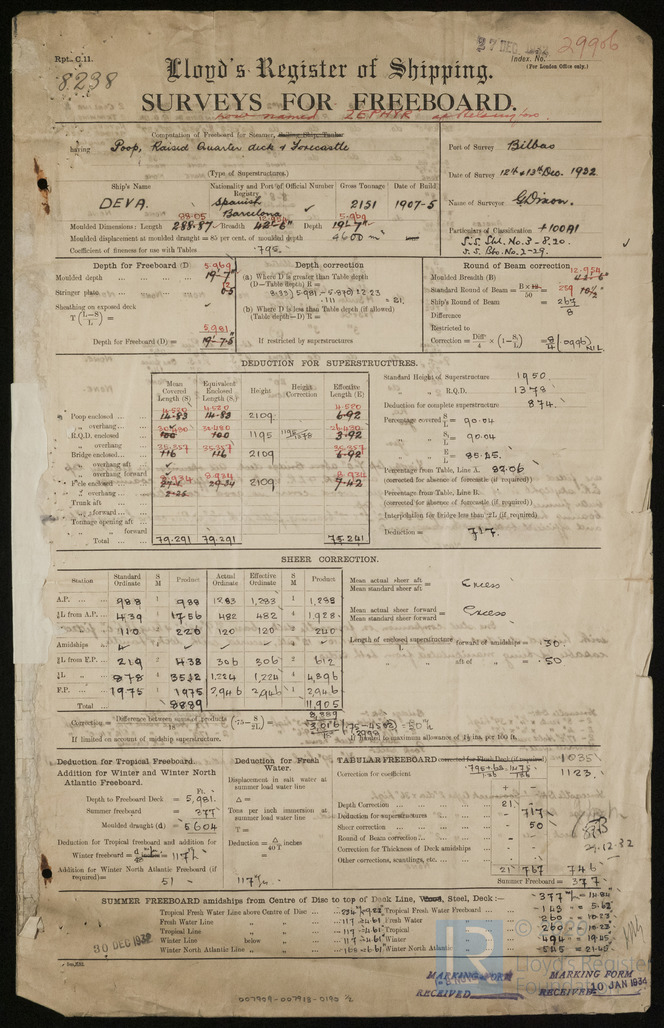 Rpt. C.11.
8238
27 DEC 1932
29906
Index. No.
(For London Office only.)
Lloyd's Register of Shipping.
SURVEYS FOR FREEBOARD.
now named ZEPHYR
Computation of Freeboard for Steamer, Sailing Ship, Tanker
having Poop, Raised Quarter deck & Forecastle
(Type of Superstructures.)
Port of Survey Bilbao
Date of Survey 12th & 13th Dec. 1932
Name of Surveyor G. Dixon.
Particulars of Classification +100A1
S.S. No. 3-8.20.
S.S. Bbo. No. 2-29.
Ship's Name
Nationality and Port of Registry
Official Number
Gross Tonnage
Date of Build
DEVA.
Spanish
Barcelona
2151
1907-5
Moulded Dimensions: Length 288.87 Breadth 42'-6" Depth 19'-7"
88.05
5.969
Moulded displacement at moulded draught = 85 per cent. of moulded depth 4600 m³
Coefficient of fineness for use with Tables .795
Depth for Freeboard (D)
Moulded depth 19'-7"
5.969
Stringer plate 0.5
Sheathing on exposed deck
T (L-S/L) =
5.981
Depth for Freeboard (D) = 19'-7.5
Depth correction
(a) Where D is greater than Table depth
(D—Table depth) R =
(b) Where D is less than Table depth (if allowed)
(Table depth—D) R =
If restricted by superstructures
Round of Beam correction
Moulded Breadth (B) 12.954
Standard Round of Beam = B×12/50 = 259
Ship's Round of Beam = 267
Difference 8
Restricted to
Correction = Diff/4 × (1−S₁/L) = NIL
DEDUCTION FOR SUPERSTRUCTURES.
Mean Covered Length (S)
Equivalent Enclosed Length (S₁)
Height
Height Correction
Effective Length (E)
Poop enclosed 4.520 4.520 2109 4.520
14.83 14.83 6.92
" overhang
R.Q.D. enclosed 30.480 30.480 1195 1195/1373
100 100
" overhang
Bridge enclosed 35.357 35.357 2109 35.357
116 116
" overhang aft
" overhang forward
F'cle enclosed 8.934 8.934 2109 8.934
29.34 7.42
" overhang 2.25
Trunk aft
" forward
Tonnage opening aft
" " forward
Total 79.291 79.291 75.241
Standard Height of Superstructure 1950.
" " R.Q.D. 1373
Deduction for complete superstructure 874.
Percentage covered S/L = 90.04
" S₁/L = 90.04
" E/L = 85.45.
Percentage from Table, Line A. 82.06
(corrected for absence of forecastle (if required))
Percentage from Table, Line B.
(corrected for absence of forecastle (if required))
Interpolation for bridge less than ·2L (if required)
Deduction = 717.
SHEER CORRECTION.
Station
Standard Ordinate
S M
Product
Actual Ordinate
Effective Ordinate
S M
Product
A.P. 988 1 988 1283 1,283 1 1,283
⅙L from A.P. 439 4 1756 482 482 4 1,928
⅓L " 110 2 220 120 120 2 240
Amidships 4 4
⅓L from F.P. 219 2 438 306 306 2 612
⅙L " 878 4 3512 1,224 1,224 4 4,896
F.P. 1975 1 1975 2,946 2,946 1 2,946
Total 8889 11,905
Mean actual sheer aft / Mean standard sheer aft = Excess
Mean actual sheer forward / Mean standard sheer forward = Excess
Length of enclosed superstructure/L forward of amidships = .50
" " aft of " = .50
8,889
3,016
Correction = Difference between sums of products/18 (·75−S/2L) =
If limited on account of midship superstructure.
If limited to maximum allowance of 1½ ins. per 100 ft.
Deduction for Tropical Freeboard.
Addition for Winter and Winter North Atlantic Freeboard.
Depth to Freeboard Deck = 5,981.
Summer freeboard = 377
Moulded draught (d) = 5604
Deduction for Tropical freeboard and addition for Winter freeboard = 117
Addition for Winter North Atlantic Freeboard (if required) = 51
Deduction for Fresh Water.
Displacement in salt water at summer load water line
Δ =
Tons per inch immersion at summer load water line
T =
Deduction = Δ/40 T inches
=
117
TABULAR FREEBOARD corrected for Flush Deck (if required) 1035
Correction for coefficient 1123.
+ -
Depth Correction 21 -
Deduction for superstructures - 717
Sheer correction - 50
Round of Beam correction - -
Correction for Thickness of Deck amidships - -
Other corrections, scantlings, etc.
21 767 746
Summer Freeboard = 377
29.12.32
SUMMER FREEBOARD amidships from Centre of Disc to top of Deck Line, Wood, Steel, Deck:— 377
Tropical Fresh Water Line above Centre of Disc 234
Fresh Water Line " " 117 = 4.61
Tropical Line " " 117 = 4.61
Winter Line below " 117 = 4.61
Winter North Atlantic Line " " 168 = 6.61
Tropical Fresh Water Freeboard 143 = 5.62
Fresh Water " 260 = 10.23
Tropical " 260 = 10.23
Winter " 494 = 19.45
Winter North Atlantic " 545 = 21.45
30 DEC 1932
MARKING FORM
RECEIVED
MARKING FORM
RECEIVED 10 JAN 1934
Lloyd's Register
Foundation
007909-007918-0190 ½